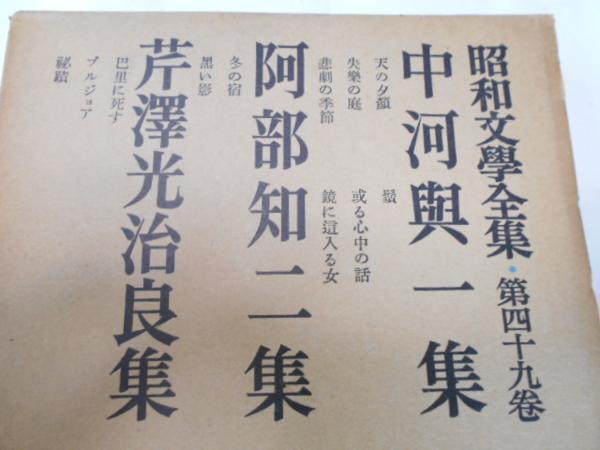 昭和文學全集・第四十九卷
中河與一集
天の夕顏
失樂の庭
悲劇の季節
鬚
或る心中の話
鏡に這入る女
阿部知二集
冬の宿
黑い影
芹澤光治良集
巴里に死す
ブルジョア
祕蹟